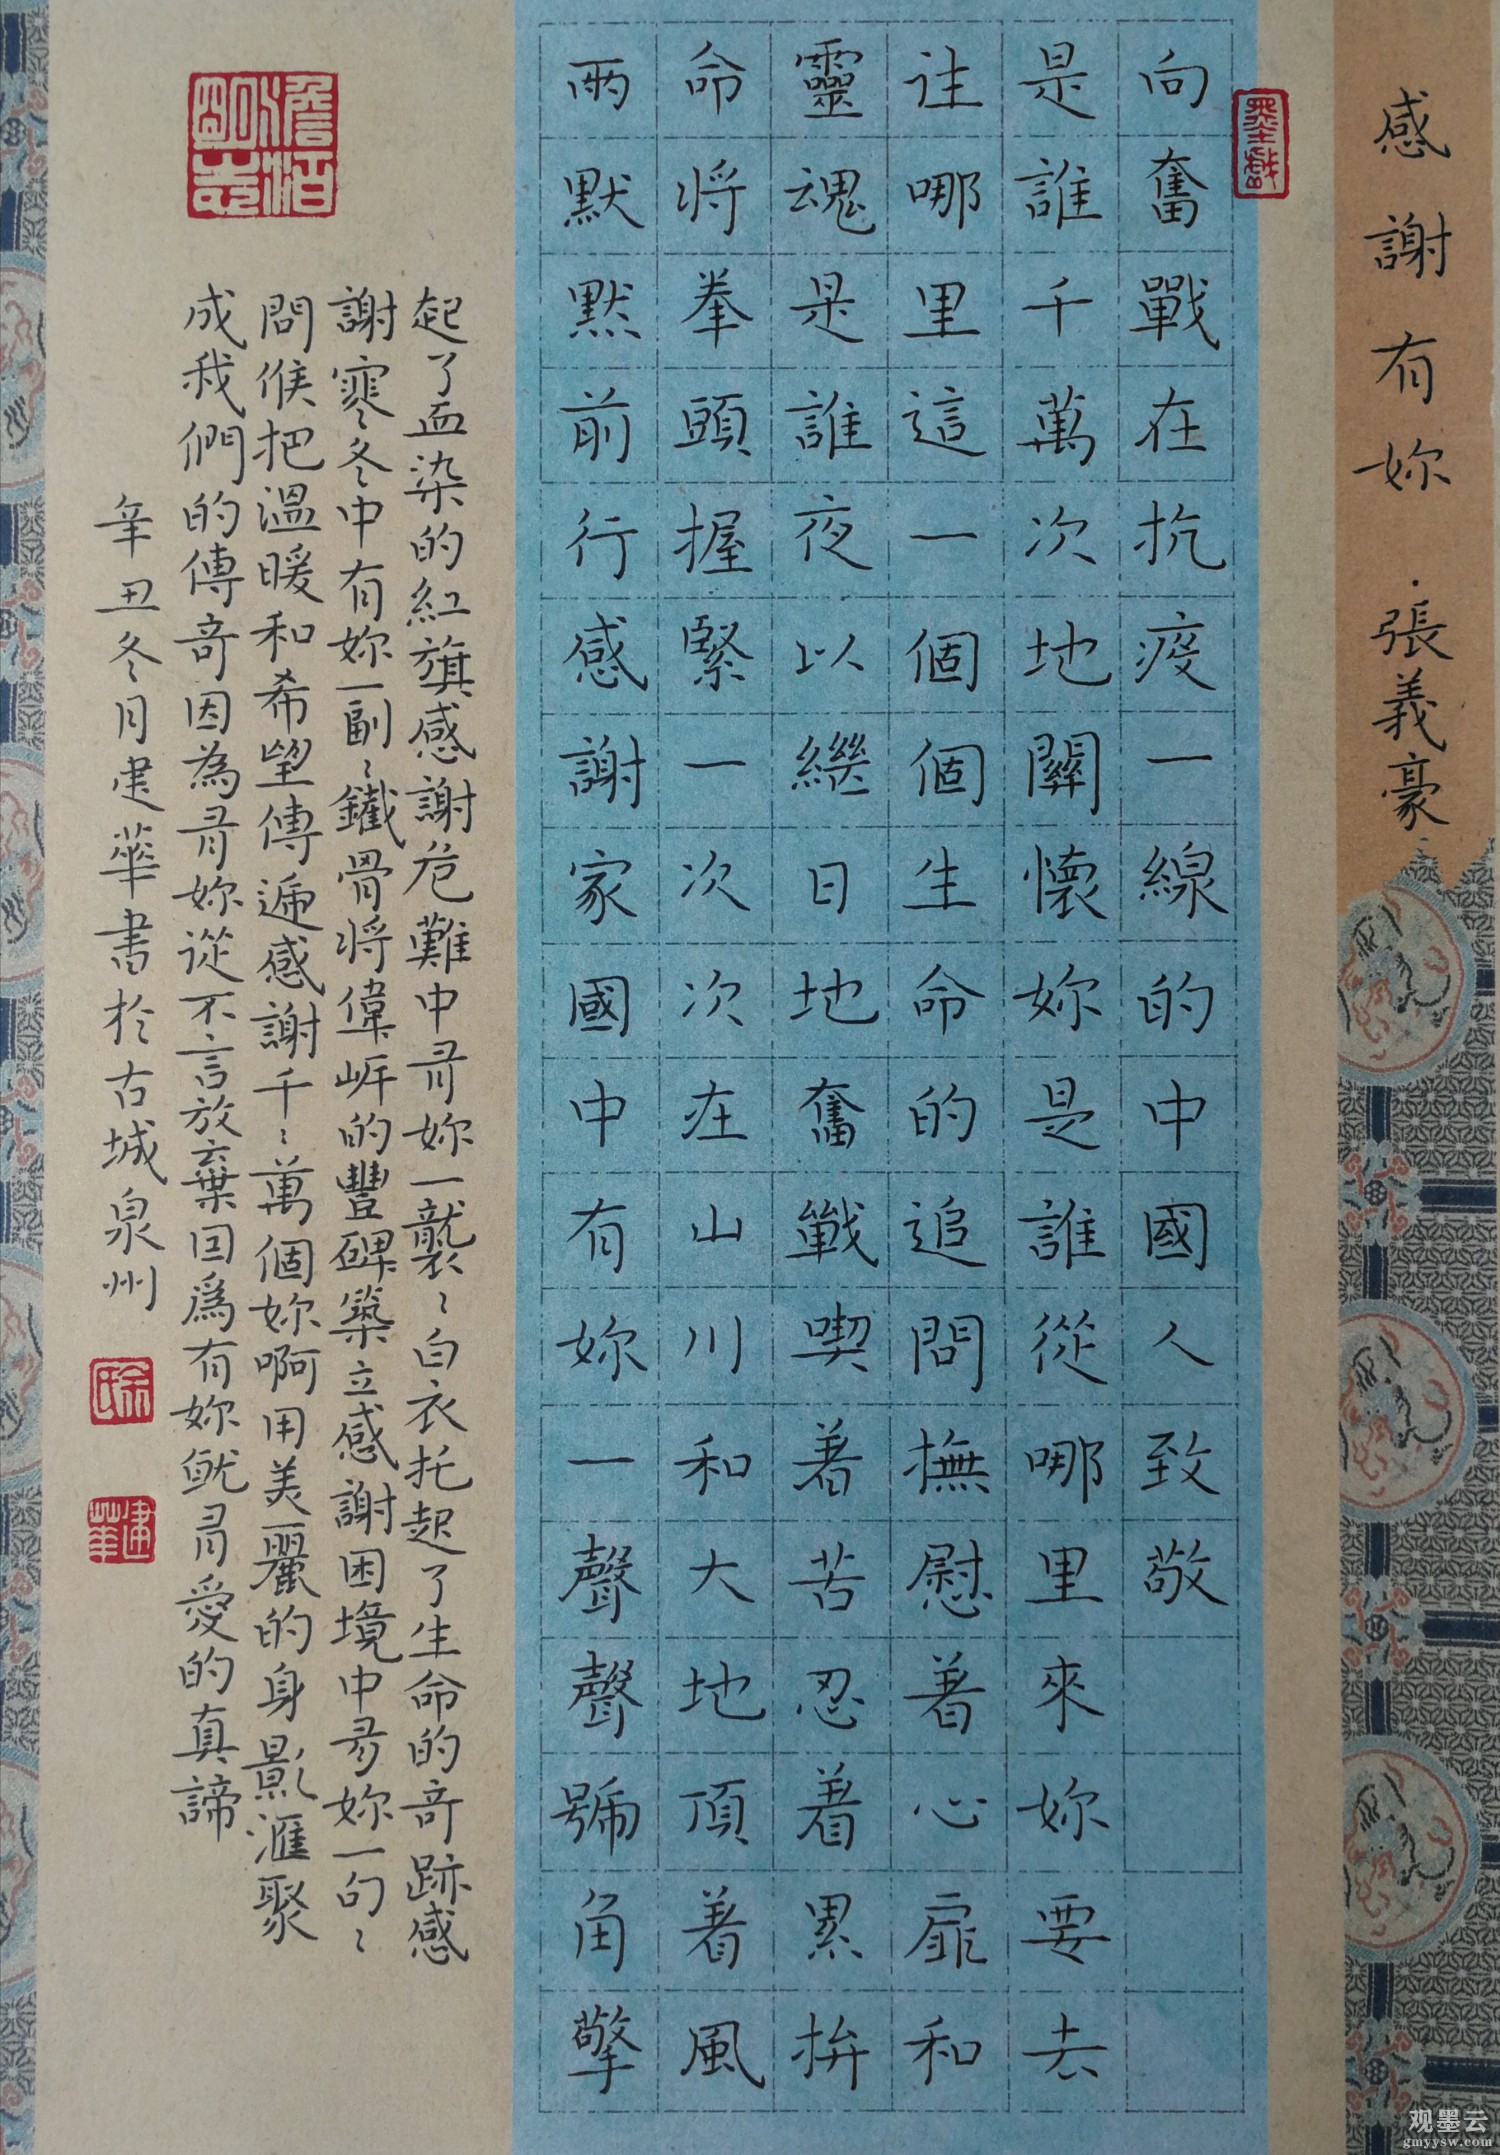 感謝有妳·張義豪
墨戲
向奮戰在抗疫一線的中國人致敬
是誰千萬次地關懷妳是誰從哪里來妳要去
往哪里這一個個生命的追問撫慰着心扉和
靈魂是誰夜以繼日地奮戰喫着苦忍着累拚
命將拳頭握緊一次次在山川和大地頂着風
雨默默前行感謝家國中有妳一聲聲號角擎
起了血染的紅旗感謝危難中有妳一襲〻白衣托起了生命的奇跡感
謝寒冬中有妳一副〻鐵骨將偉岸的豐碑築立感謝困境中有妳一句〻
問候把溫暖和希望傳遞感謝千〻萬個妳啊用美麗的身影滙聚
成我們的傳奇因為有妳從不言放棄因爲有妳就有愛的真諦
辛丑冬月建華書於古城泉州
澹泊明志
余氏
建華
观墨云
gmyysw.com